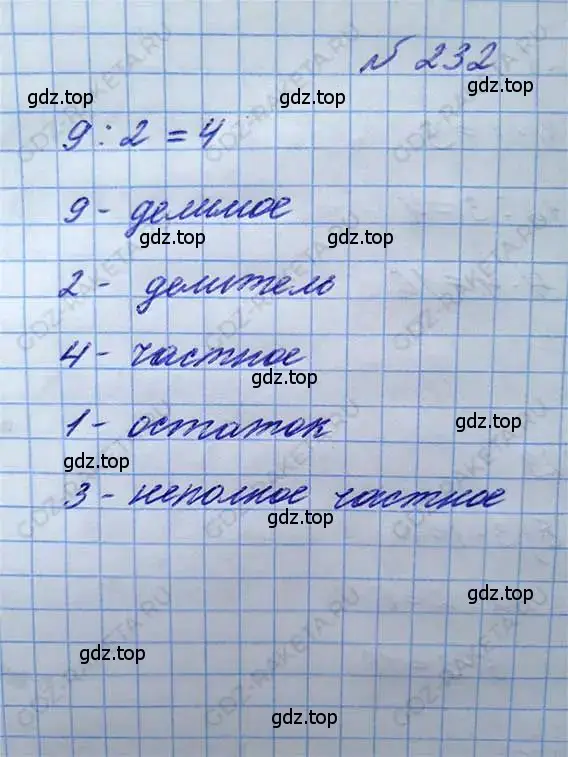 № 232
gdz.top
9 : 2 = 4
9 - делимое
gdz.top
2 - делитель
gdz.top
4 - частное
gdz.top
1 - остаток
gdz.top
gdz.top
3 - неполное частное
gdz.top
gdz.top
gdz.top
gdz.top
GDZ-RAKETA.RU